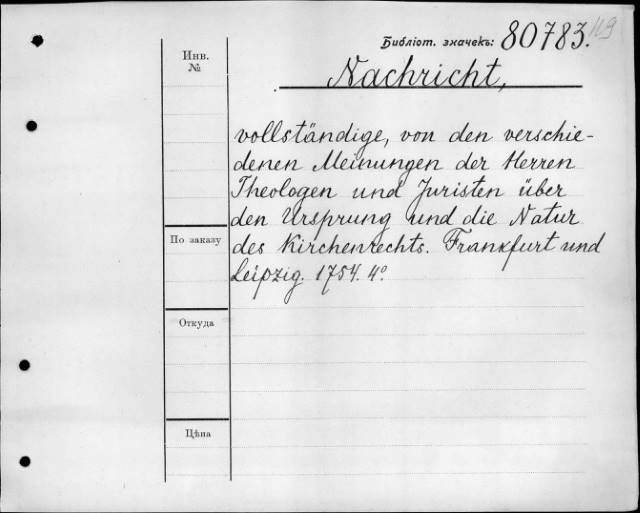 119
Библіот. значекъ: 80783.
Инв.
№
Nachricht,
vollständige, von den verschie-
denen Meinungen der Herren
Theologen und Juristen über
den Ursprung und die Natur
des Kirchenrechts. Frankfurt und
Leipzig. 1754. 4º.
По заказу
Откуда
Цѣна